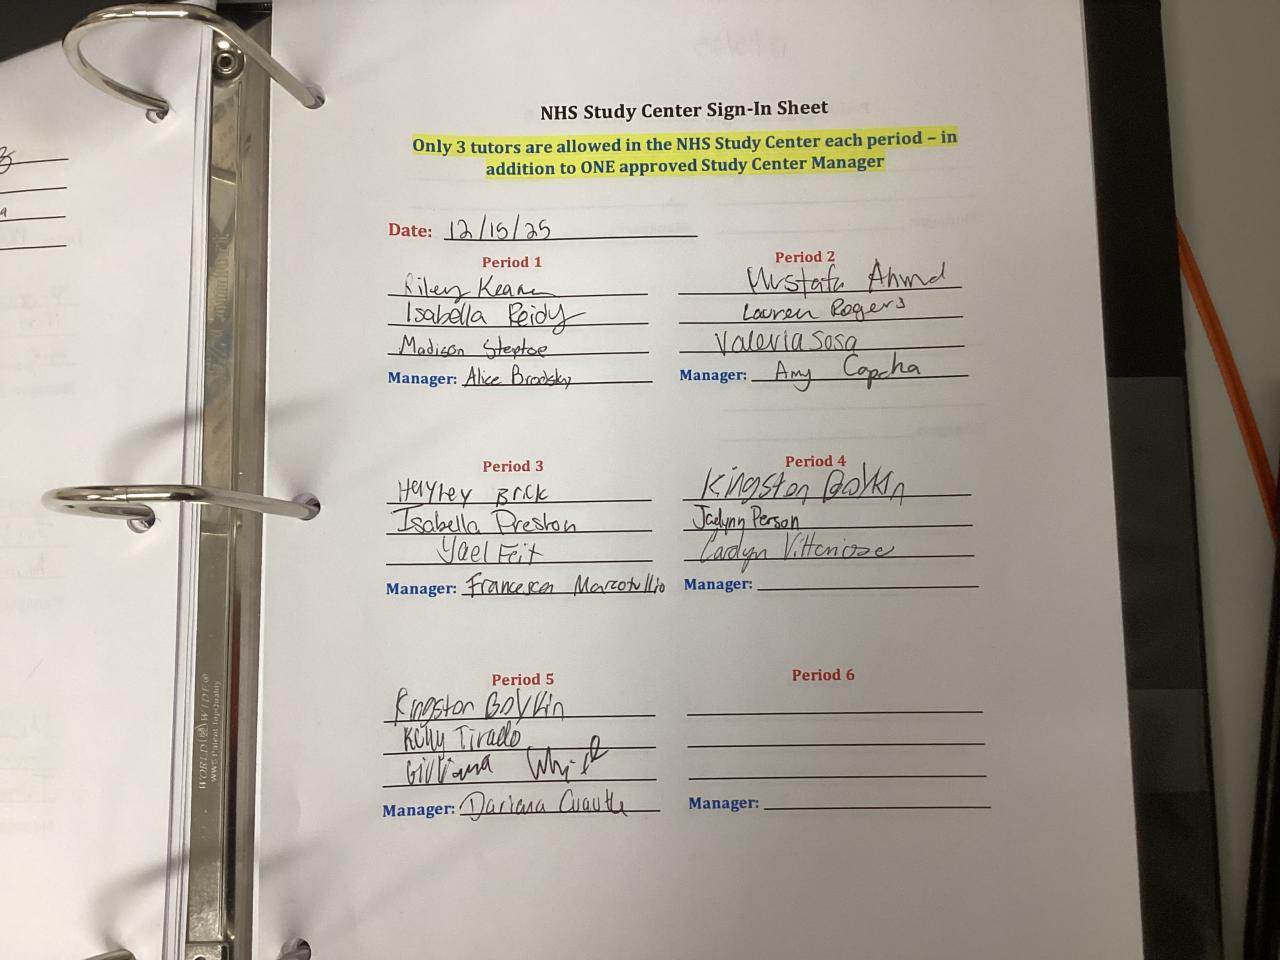 NHS Study Center Sign-In Sheet
Only 3 tutors are allowed in the NHS Study Center each period – in
addition to ONE approved Study Center Manager
Date: 12/15/25
Period 1
Riley Keane
Isabella Reidy
Madison Steptoe
Manager: Alice Brodsky
Period 2
Mustafa Ahmd
Lauren Rogers
Valeria Sosa
Manager: Amy Capcha
Period 3
Hayley Brick
Isabella Preston
Yael Feit
Manager: Francesca Marcotullio
Period 4
Kingston Boykin
Jadynn Person
Carolyn
Manager:
Period 5
Kingston Boykin
Kelly Tirado
Gilliana
Manager: Dariana Cuautle
Period 6
Manager:
WORLD WIDE